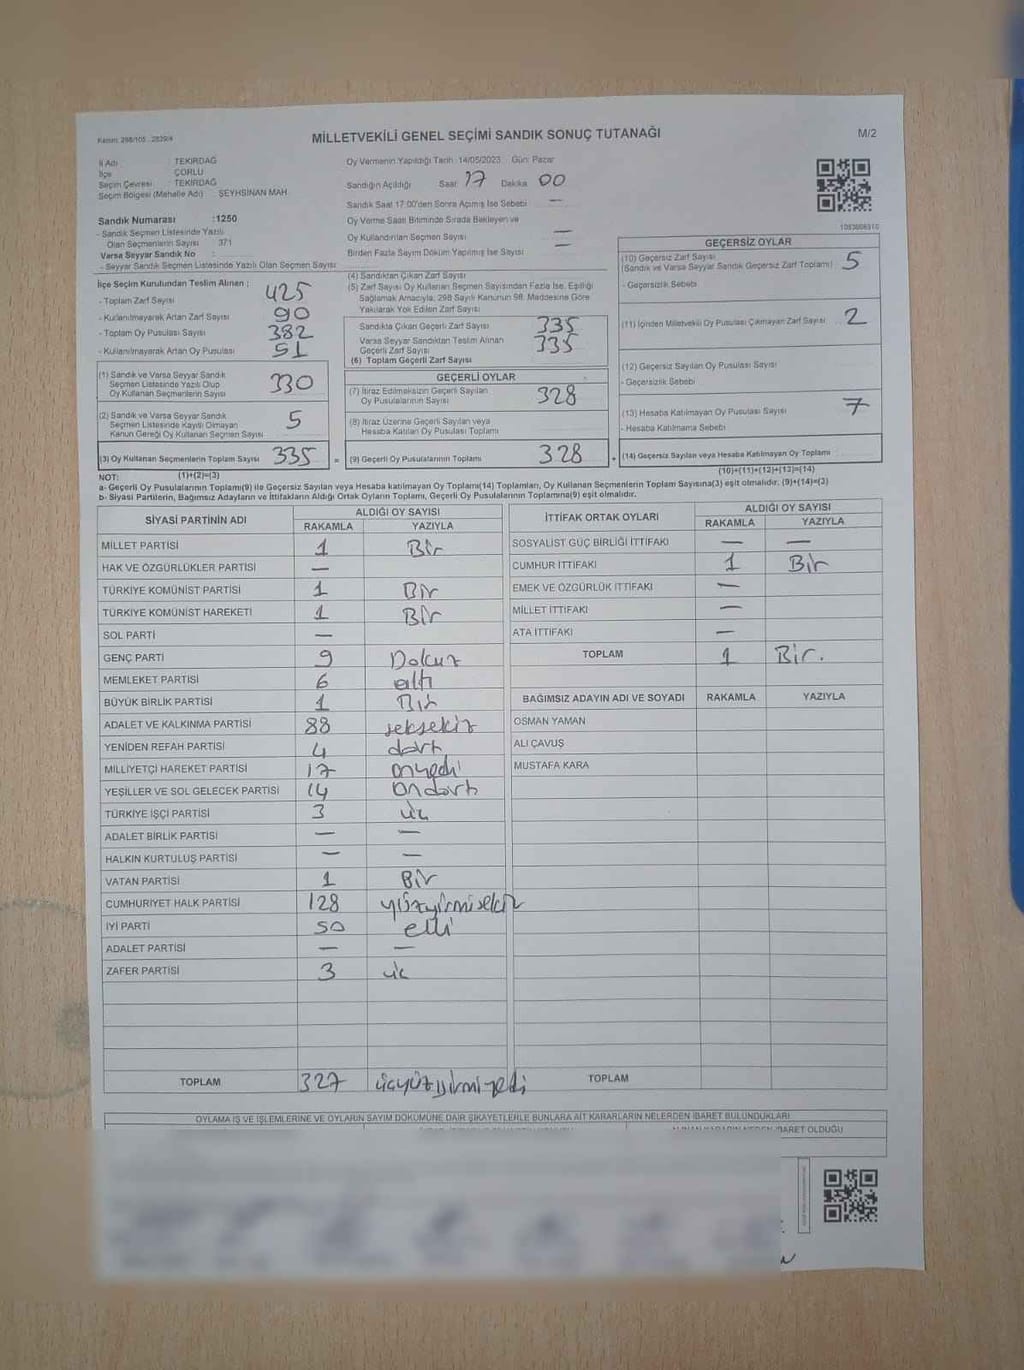 Kanun: 298/105 , 2839/4
MİLLETVEKİLİ GENEL SEÇİMİ SANDIK SONUÇ TUTANAĞI
M/2
İl Adı : TEKİRDAĞ
İlçe : ÇORLU
Seçim Çevresi : TEKİRDAĞ
Seçim Bölgesi (Mahalle Adı) : ŞEYHSİNAN MAH.
Sandık Numarası :1250
- Sandık Seçmen Listesinde Yazılı
Olan Seçmenlerin Sayısı : 371
Varsa Seyyar Sandık No :
- Seyyar Sandık Seçmen Listesinde Yazılı Olan Seçmen Sayısı
Oy Vermenin Yapıldığı Tarih :14/05/2023 Gün: Pazar
Sandığın Açıldığı Saat 17 Dakika 00
Sandık Saat 17:00'den Sonra Açımış İse Sebebi —
Oy Verme Saati Bitiminde Sırada Bekleyen ve
Oy Kullandırılan Seçmen Sayısı —
Birden Fazla Sayım Döküm Yapılmış İse Sayısı —
İlçe Seçim Kurulundan Teslim Alınan ;
- Toplam Zarf Sayısı 425
- Kullanılmayarak Artan Zarf Sayısı 90
- Toplam Oy Pusulası Sayısı 382
- Kullanılmayarak Artan Oy Pusulası 51
(1) Sandık ve Varsa Seyyar Sandık
Seçmen Listesinde Yazılı Olup
Oy Kullanan Seçmenlerin Sayısı 330
(2) Sandık ve Varsa Seyyar Sandık
Seçmen Listesinde Kayıtlı Olmayan
Kanun Gereği Oy Kullanan Seçmen Sayısı 5
(3) Oy Kullanan Seçmenlerin Toplam Sayısı 335 =
(4) Sandıktan Çıkan Zarf Sayısı
(5) Zarf Sayısı Oy Kullanan Seçmen Sayısından Fazla İse, Eşitliği
Sağlamak Amacıyla, 298 Sayılı Kanunun 98. Maddesine Göre
Yakılarak Yok Edilen Zarf Sayısı
Sandıkta Çıkan Geçerli Zarf Sayısı 335
Varsa Seyyar Sandıktan Teslim Alınan
Geçerli Zarf Sayısı 335
(6) Toplam Geçerli Zarf Sayısı
GEÇERLİ OYLAR
(7) İtiraz Edilmeksizin Geçerli Sayılan
Oy Pusulalarının Sayısı 328
(8) İtiraz Üzerine Geçerli Sayılan veya
Hesaba Katılan Oy Pusulası Toplamı
(9) Geçerli Oy Pusulalarının Toplamı 328 +
1053606310
GEÇERSİZ OYLAR
(10) Geçersiz Zarf Sayısı
(Sandık ve Varsa Seyyar Sandık Geçersiz Zarf Toplamı) 5
- Geçersizlik Sebebi
(11) İçinden Milletvekili Oy Pusulası Çıkmayan Zarf Sayısı 2
(12) Geçersiz Sayılan Oy Pusulası Sayısı
- Geçersizlik Sebebi
(13) Hesaba Katılmayan Oy Pusulası Sayısı 7
- Hesaba Katılmama Sebebi
(14) Geçersiz Sayılan veya Hesaba Katılmayan Oy Toplamı
NOT: (1)+(2)=(3) (10)+(11)+(12)+(13)=(14)
a- Geçerli Oy Pusulalarının Toplamı(9) ile Geçersiz Sayılan veya Hesaba Katılmayan Oy Toplamı(14) Toplamları, Oy Kullanan Seçmenlerin Toplam Sayısına(3) eşit olmalıdır. (9)+(14)=(3)
b- Siyasi Partilerin, Bağımsız Adayların ve İttifakların Aldığı Ortak Oyların Toplamı, Geçerli Oy Pusulalarının Toplamına(9) eşit olmalıdır.
SİYASİ PARTİNİN ADI ALDIĞI OY SAYISI
RAKAMLA YAZIYLA
MİLLET PARTİSİ 1 Bir
HAK VE ÖZGÜRLÜKLER PARTİSİ —
TÜRKİYE KOMÜNİST PARTİSİ 1 Bir
TÜRKİYE KOMÜNİST HAREKETİ 1 Bir
SOL PARTİ —
GENÇ PARTİ 9 Dokuz
MEMLEKET PARTİSİ 6 altı
BÜYÜK BİRLİK PARTİSİ 1 Bir
ADALET VE KALKINMA PARTİSİ 88 seksekiz
YENİDEN REFAH PARTİSİ 4 dört
MİLLİYETÇİ HAREKET PARTİSİ 17 onyedi
YEŞİLLER VE SOL GELECEK PARTİSİ 14 ondört
TÜRKİYE İŞÇİ PARTİSİ 3 üç
ADALET BİRLİK PARTİSİ — —
HALKIN KURTULUŞ PARTİSİ — —
VATAN PARTİSİ 1 Bir
CUMHURİYET HALK PARTİSİ 128 yüzyirmisekiz
İYİ PARTİ 50 elli
ADALET PARTİSİ — —
ZAFER PARTİSİ 3 üç
TOPLAM 327 üçyüzyirmiyedi
İTTİFAK ORTAK OYLARI ALDIĞI OY SAYISI
RAKAMLA YAZIYLA
SOSYALİST GÜÇ BİRLİĞİ İTTİFAKI — —
CUMHUR İTTİFAKI 1 Bir
EMEK VE ÖZGÜRLÜK İTTİFAKI —
MİLLET İTTİFAKI —
ATA İTTİFAKI —
TOPLAM 1 Bir.
BAĞIMSIZ ADAYIN ADI VE SOYADI RAKAMLA YAZIYLA
OSMAN YAMAN
ALİ ÇAVUŞ
MUSTAFA KARA
TOPLAM
OYLAMA İŞ VE İŞLEMLERİNE VE OYLARIN SAYIM DÖKÜMÜNE DAİR ŞİKAYETLERLE BUNLARA AİT KARARLARIN NELERDEN İBARET BULUNDUKLARI
İBARET OLDUĞU